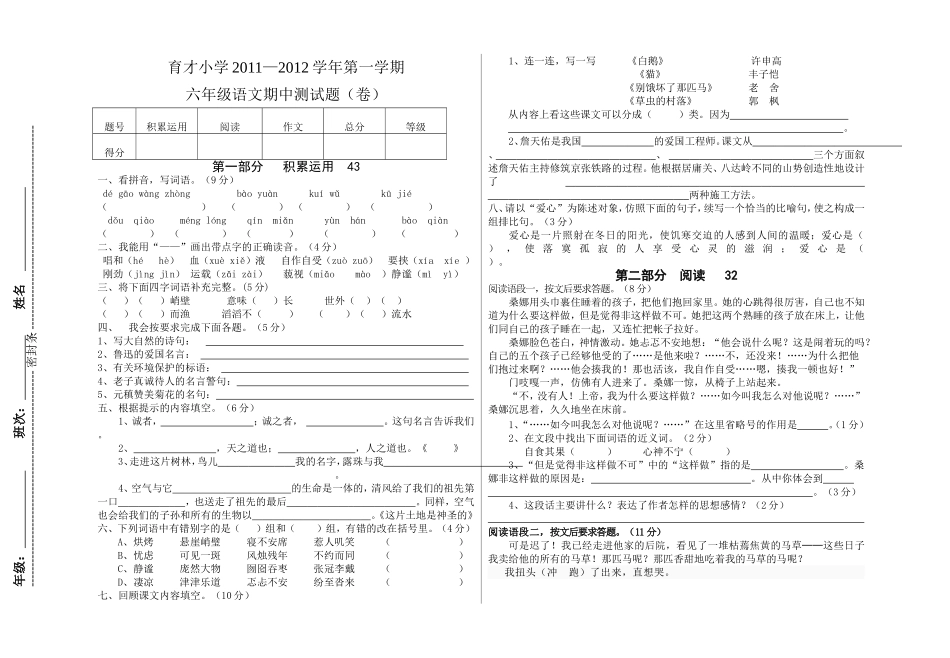 年级: 班次: 姓名
密封条
育才小学 2011—2012 学年第一学期
六年级语文期中测试题（卷）
题号 积累运用 阅读 作文 总分 等级
得分
第一部分 积累运用 43
一、看拼音，写词语。（9 分）
dé gāo wàng zhòng bào yuàn kuí wǔ kū jié
（ ） （ ） （ ） （ ）
dǒu qiào méng lóng qín miǎn yùn hán bào qiàn
（ ） （ ） （ ） （ ） （ ）
二、我能用“——”画出带点字的正确读音。（4 分）
唱和（hé hè） 血（xuè xiě）液 自作自受（zuò zuō） 要挟（xia xie ）
刚劲（jìng jìn） 运载（zǎi zài） 藐视（miǎo mào ）静谧（mì yì）
三、将下面四字词语补充完整。（5 分)
（ ）（ ）峭壁 意味（ ）长 世外（ ）（ ）
（ ）（ ）而渔 滔滔不（ ） （ ）（ ）流水
四、 我会按要求完成下面各题。（5 分）
1、写大自然的诗句：
2、鲁迅的爱国名言：
3、有关环境保护的标语：
4、老子真诚待人的名言警句：
5、元稹赞美菊花的名句：
五、根据提示的内容填空。（6 分）
1、诚者， ；诚之者， 。这句名言告诉我们
。
2、 ，天之道也； ，人之道也。《 》
3、走进这片树林，鸟儿 我的名字，露珠与我
。
4、空气与它 的生命是一体的，清风给了我们的祖先第
一口 ，也送走了祖先的最后 。同样，空气
也会给我们的子孙和所有的生物以 。《这片土地是神圣的》
六、下列词语中有错别字的是（ ）组和（ ）组，有错的改在括号里。（4 分）
A、烘烤 悬崖峭壁 寝不安席 惹人叽笑 （ ）
B、忧虑 可见一斑 风烛残年 不约而同 （ ）
C、静谧 庞然大物 囫囵吞枣 张冠李戴 （ ）
D、凄凉 津津乐道 忐忐不安 纷至沓来 （ ）
七、回顾课文内容填空。（10 分）
1、连一连，写一写 《白鹅》 许申高
《猫》 丰子恺
《别饿坏了那匹马》 老 舍
《草虫的村落》 郭 枫
从内容上看这些课文可以分成（ ）类。因为
。
2、詹天佑是我国 的爱国工程师。课文从
、 、 三个方面叙
述詹天佑主持修筑京张铁路的过程。他根据居庸关、八达岭不同的山势创造性地设计
了
两种施工方法。
八、请以“爱心”为陈述对象，仿照下面的句子，续写一个恰当的比喻句，使之构成一
组排比句。（3 分）
爱心是一片照射在冬日的阳光，使饥寒交迫的人感到人间的温暖；爱心是（
），使落寞孤寂的人享受心灵的滋润；爱心是（
）。
第二部分 阅读 32
阅读语段一，按文后要求答题。（8 分）
桑娜用头巾裹住睡着的孩子，把他们抱回家里。她的心跳得很厉害，自己也不知
道为什么要这样做，但是觉得非这样做不可。她把这两个熟睡的孩子放在床上，让他
们同自己的孩子睡在一起，又连忙把帐子拉好。
桑娜脸色苍白，神情激动。她忐忑不安地想：“他会说什么呢？这是闹着玩的吗？
自己的五个孩子已经够他受的了……是他来啦？……不，还没来！……为什么把他
们抱过来啊？……他会揍我的！那也活该，我自作自受……嗯，揍我一顿也好！”
门吱嘎一声，仿佛有人进来了。桑娜一惊，从椅子上站起来。
“不，没有人！上帝，我为什么要这样做？……如今叫我怎么对他说呢？……”
桑娜沉思着，久久地坐在床前。
1、“……如今叫我怎么对他说呢？……”在这里省略号的作用是 。（1 分）
2、在文段中找出下面词语的近义词。（2 分）
自食其果（ ） 心神不宁（ ）
3、“但是觉得非这样做不可”中的“这样做”指的是 。桑
娜非这样做的原因是： 。从中你体会到
。（3 分）
4、这段话主要讲什么？表达了作者怎样的思想感情？（2 分）
阅读语段二，按文后要求答题。（11 分）
可是迟了！我已经走进他家的后院，看见了一堆枯蔫焦黄的马草——这些日子
我卖给他的所有的马草！那匹马呢？那匹香甜地吃着我的马草的马呢？
我扭头（冲 跑）了出来，直想哭。